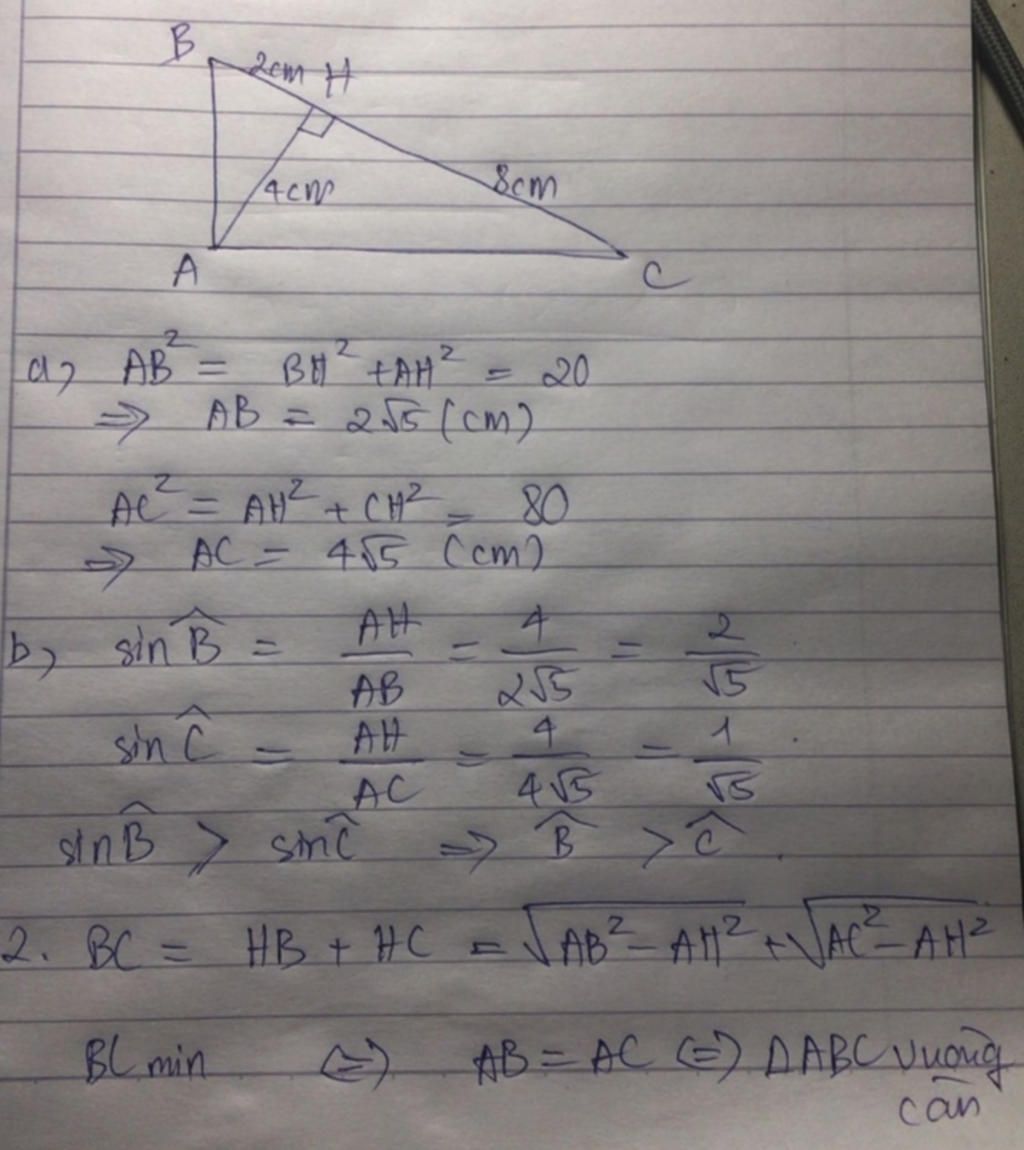 B
2cm H
4cm
8cm
A
C
a) AB² = BH² + AH² = 20
⇒ AB = 2√5 (cm)
AC² = AH² + CH² = 80
⇒ AC = 4√5 (cm)
b) sin B̂ = AH/AB = 4/2√5 = 2/√5
sin Ĉ = AH/AC = 4/4√5 = 1/√5
sin B̂ > sin Ĉ ⇒ B̂ > Ĉ
2. BC = HB + HC = √(AB² − AH²) + √(AC² − AH²)
BC min ⇔ AB = AC ⇔ ΔABC vuông
cân